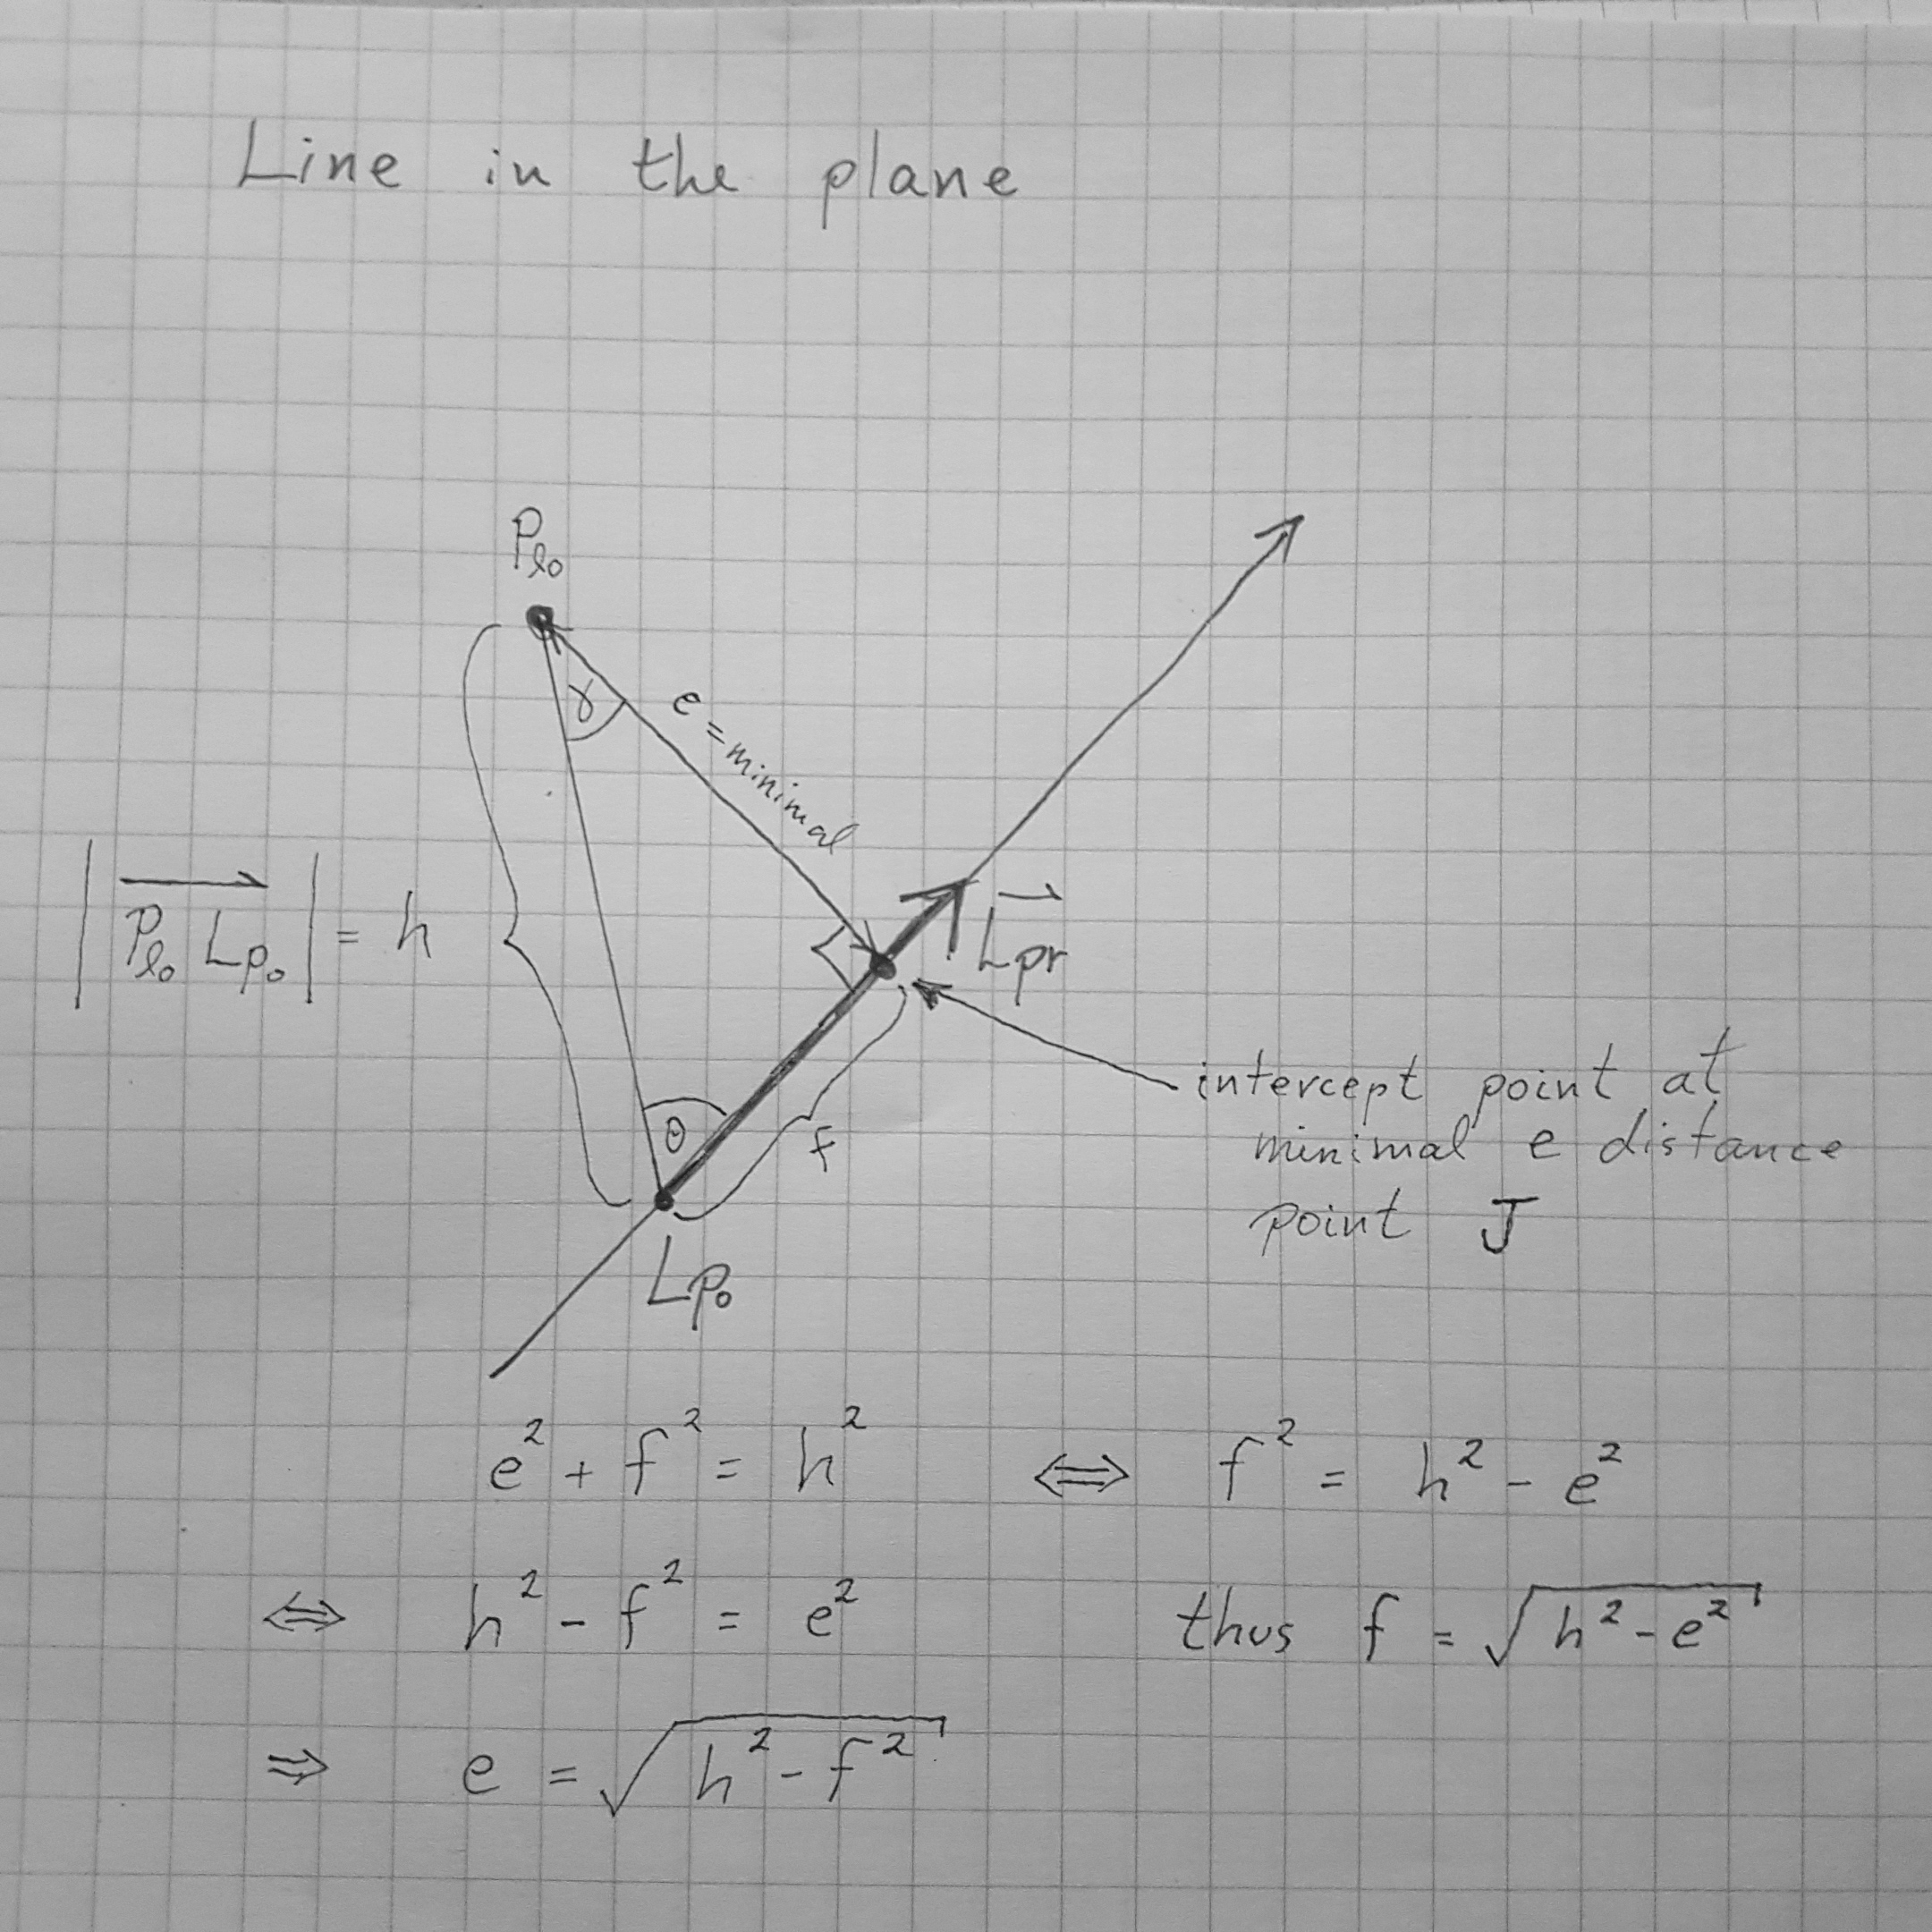 Line in the plane
Pℓ₀
γ
e = minimal
|Pℓ₀ Lp₀| = h
Lpr
θ
f
Lp₀
intercept point at
minimal e distance
point J
e² + f² = h² ⇔ f² = h² - e²
⇔ h² - f² = e² thus f = √(h² - e²)
⇒ e = √(h² - f²)